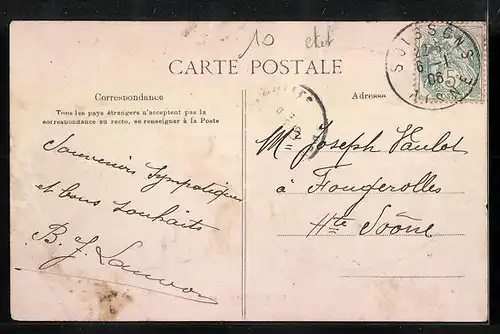 10 etet
CARTE POSTALE
Correspondance
Tous les pays étrangers n'acceptent pas la
correspondance au recto, se renseigner à la Poste
Adresse
SOISSONS
6 - 1
08
AISNE
5c
Souvenirs Sympatiques
et bons souhaits
B. J. Lauvon
Mr Joseph Vaulot
à Fougerolles
Hte Soône